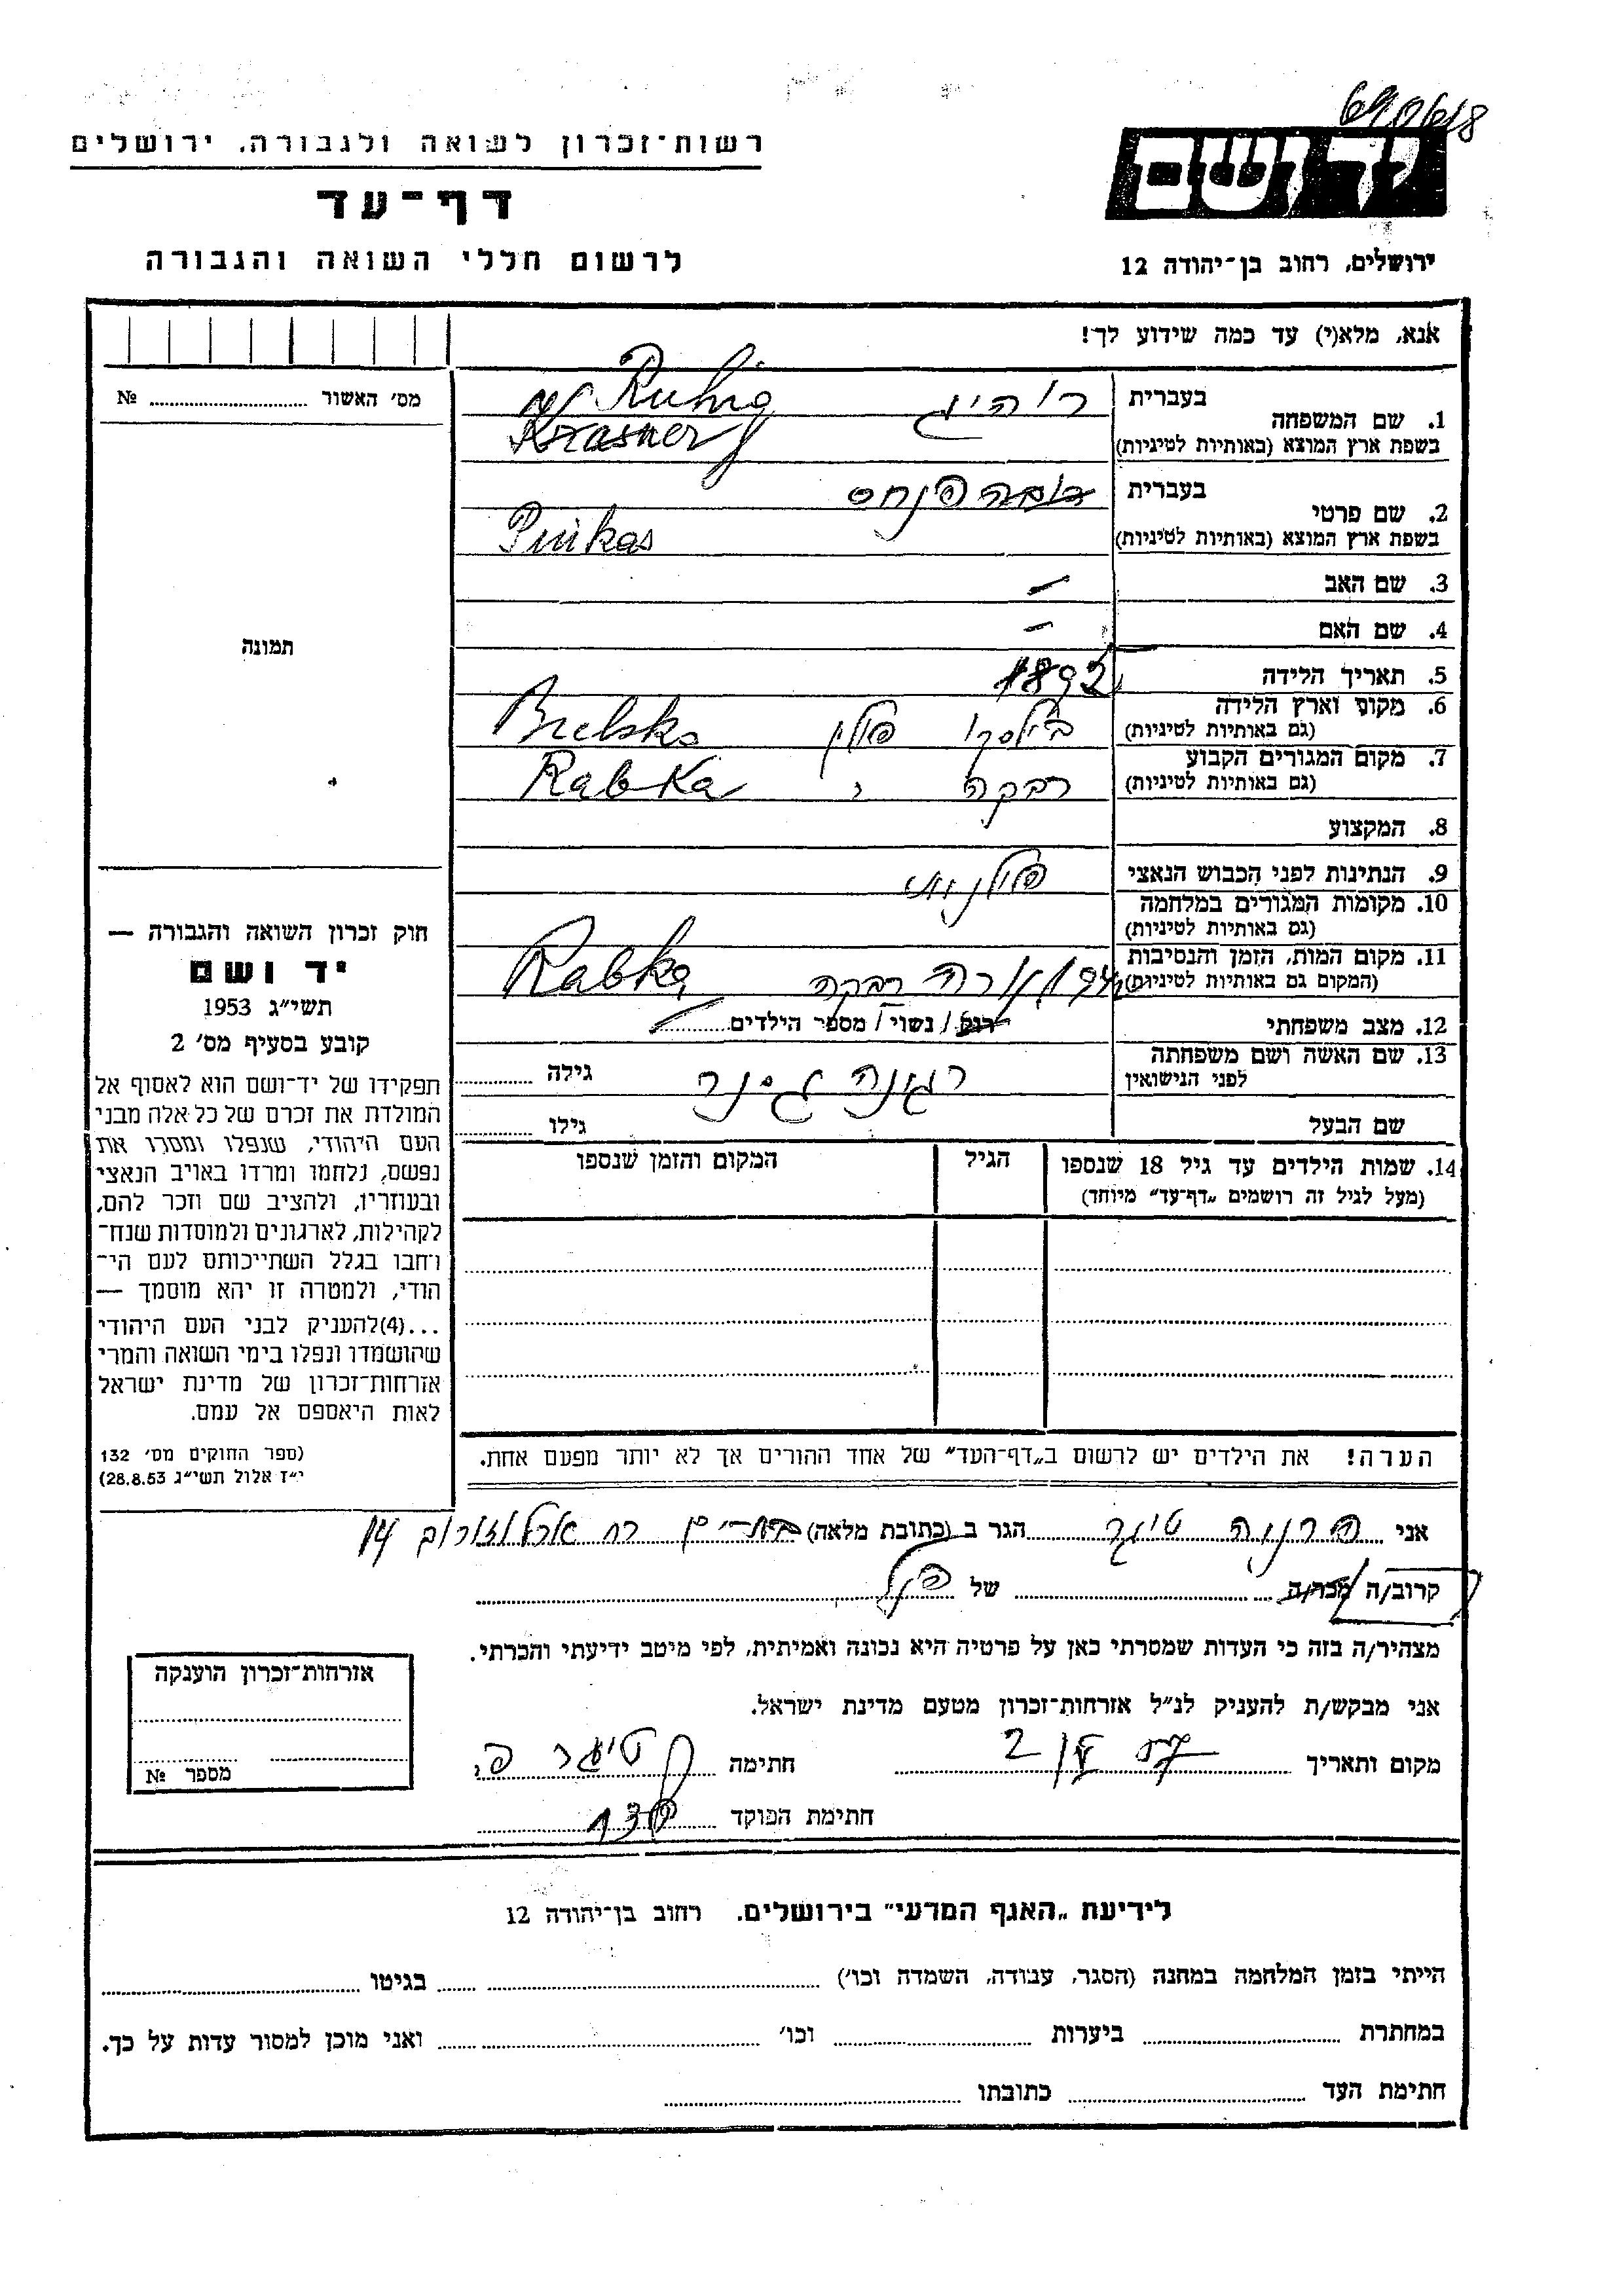 רשות־זכרון לשואה ולגבורה, ירושלים
דף־עד
לרשום חללי השואה והגבורה
יד ושם
ירושלים, רחוב בן־יהודה 12
אנא, מלא(י) עד כמה שידוע לך!
מס׳ האשור ........ №
תמונה
1. שם המשפחה
בעברית רוהיג
בשפת ארץ המוצא (באותיות לטיניות) Ruhig
Krasner
2. שם פרטי
בעברית פנחס
בשפת ארץ המוצא (באותיות לטיניות) Pinkas
3. שם האב —
4. שם האם —
5. תאריך הלידה 1892
6. מקום וארץ הלידה
(גם באותיות לטיניות) פולין Bielsko
7. מקום המגורים הקבוע
(גם באותיות לטיניות) רבקה Rabka
8. המקצוע
9. הנתינות לפני הכבוש הנאצי פולנית
10. מקומות המגורים במלחמה
(גם באותיות לטיניות)
11. מקום המות, הזמן והנסיבות
(המקום גם באותיות לטיניות) רבקה Rabka
12. מצב משפחתי רוק / נשוי / מספר הילדים........
13. שם האשה ושם משפחתה
לפני הנישואין גילה ........
שם הבעל גילו ........
14. שמות הילדים עד גיל 18 שנספו
(מעל לגיל זה רושמים „דף־עד” מיוחד)
הגיל
המקום והזמן שנספו
הערה! את הילדים יש לרשום ב„דף־העד” של אחד ההורים אך לא יותר מפעם אחת.
חוק זכרון השואה והגבורה —
יד ושם
תשי״ג 1953
קובע בסעיף מס׳ 2
תפקידו של יד־ושם הוא לאסוף אל
המולדת את זכרם של כל אלה מבני
העם היהודי, שנפלו ומסרו את
נפשם, נלחמו ומרדו באויב הנאצי
ובעוזריו, ולהציב שם וזכר להם,
לקהילות, לארגונים ולמוסדות שנח־
רבו בגלל השתייכותם לעם הי־
הודי, ולמטרה זו יהא מוסמך —
...(4)להעניק לבני העם היהודי
שהושמדו ונפלו בימי השואה והמרי
אזרחות־זכרון של מדינת ישראל
לאות היאספם אל עמם.
(ספר החוקים מס׳ 132
י״ז אלול תשי״ג 28.8.53)
אני טיגר הגר ב (כתובת מלאה) בת־ים רח ארלוזורוב 14
קרוב/ה מכר/ה ........ של
מצהיר/ה בזה כי העדות שמסרתי כאן על פרטיה היא נכונה ואמיתית, לפי מיטב ידיעתי והכרתי.
אני מבקש/ת להעניק לנ״ל אזרחות־זכרון מטעם מדינת ישראל.
מקום ותאריך ........ חתימה טיגר פ.
חתימת הפוקד
אזרחות־זכרון הוענקה
מספר №
לידיעת „האגף המדעי” בירושלים, רחוב בן־יהודה 12
הייתי בזמן המלחמה במחנה (הסגר, עבודה, השמדה וכו׳) ........ בגיטו ........
במחתרת ........ ביערות ........ וכו׳ ........ ואני מוכן למסור עדות על כך.
חתימת העד ........ כתובתו ........